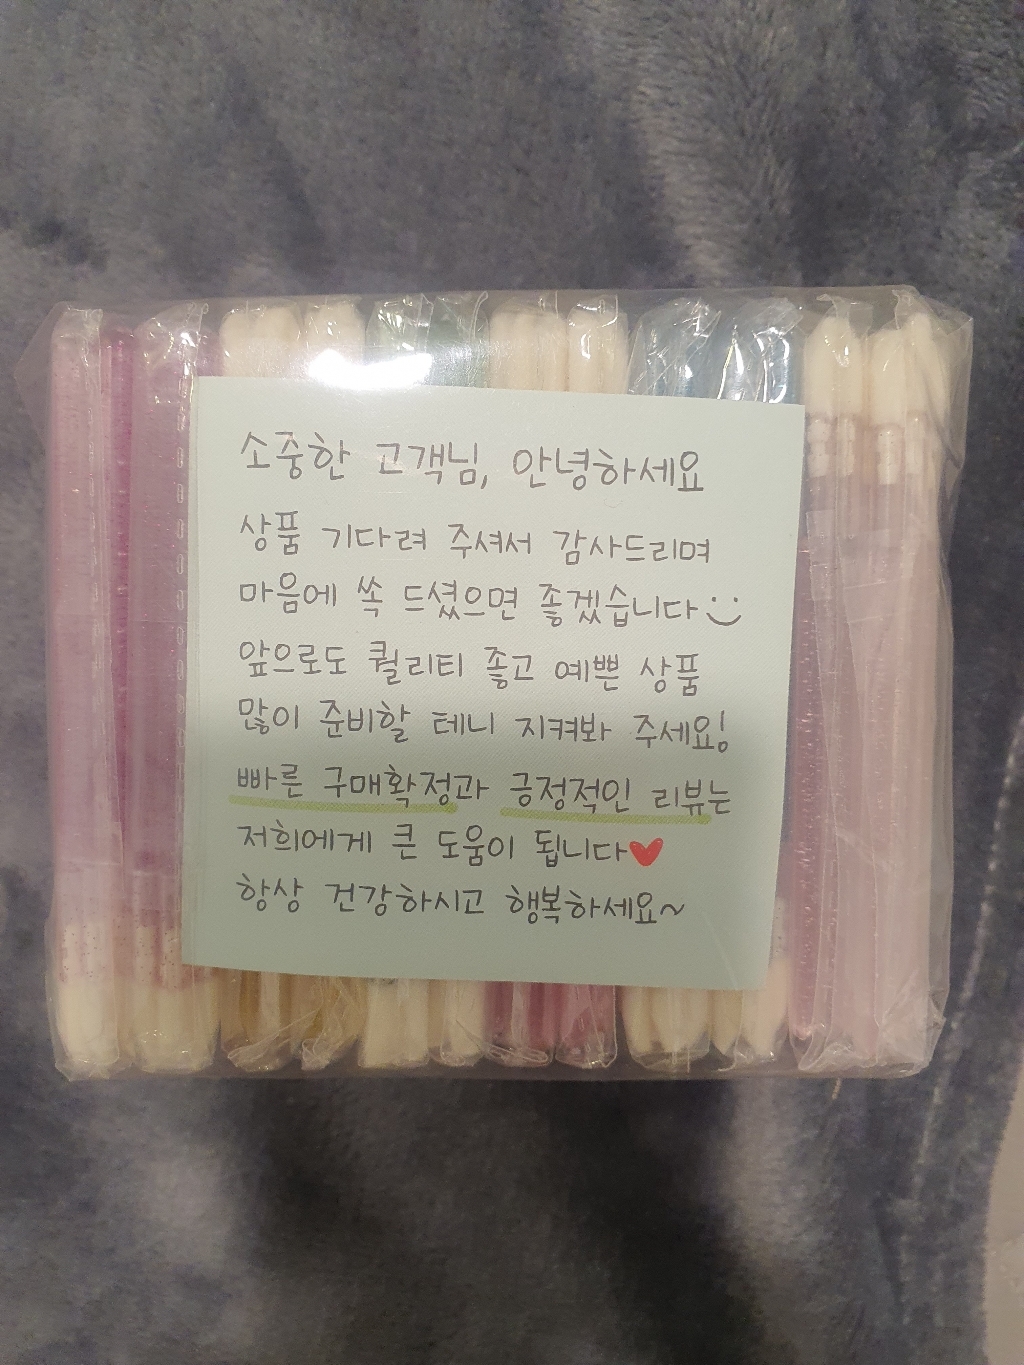 소중한 고객님, 안녕하세요
상품 기다려 주셔서 감사드리며
마음에 쏙 드셨으면 좋겠습니다
앞으로도 퀄리티 좋고 예쁜 상품
많이 준비할 테니 지켜봐 주세요!
빠른 구매확정과 긍정적인 리뷰는
저희에게 큰 도움이 됩니다♥
항상 건강하시고 행복하세요~